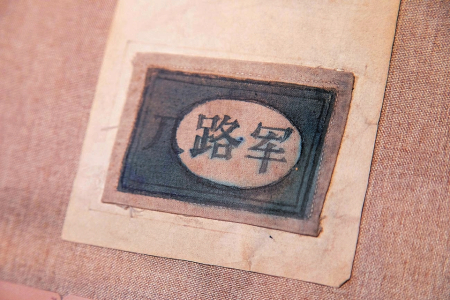 八路军